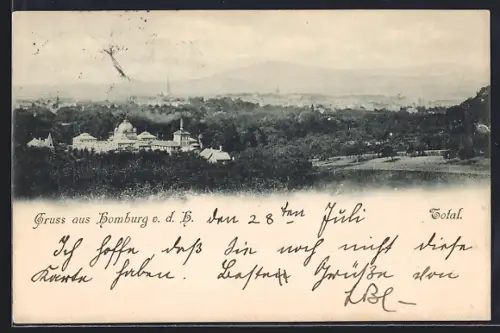 Gruss aus Homburg v. d. H. den 28ten Juli Total.
Ich hoffe daß Sie noch nicht diese
Karte haben. Beste Grüße von